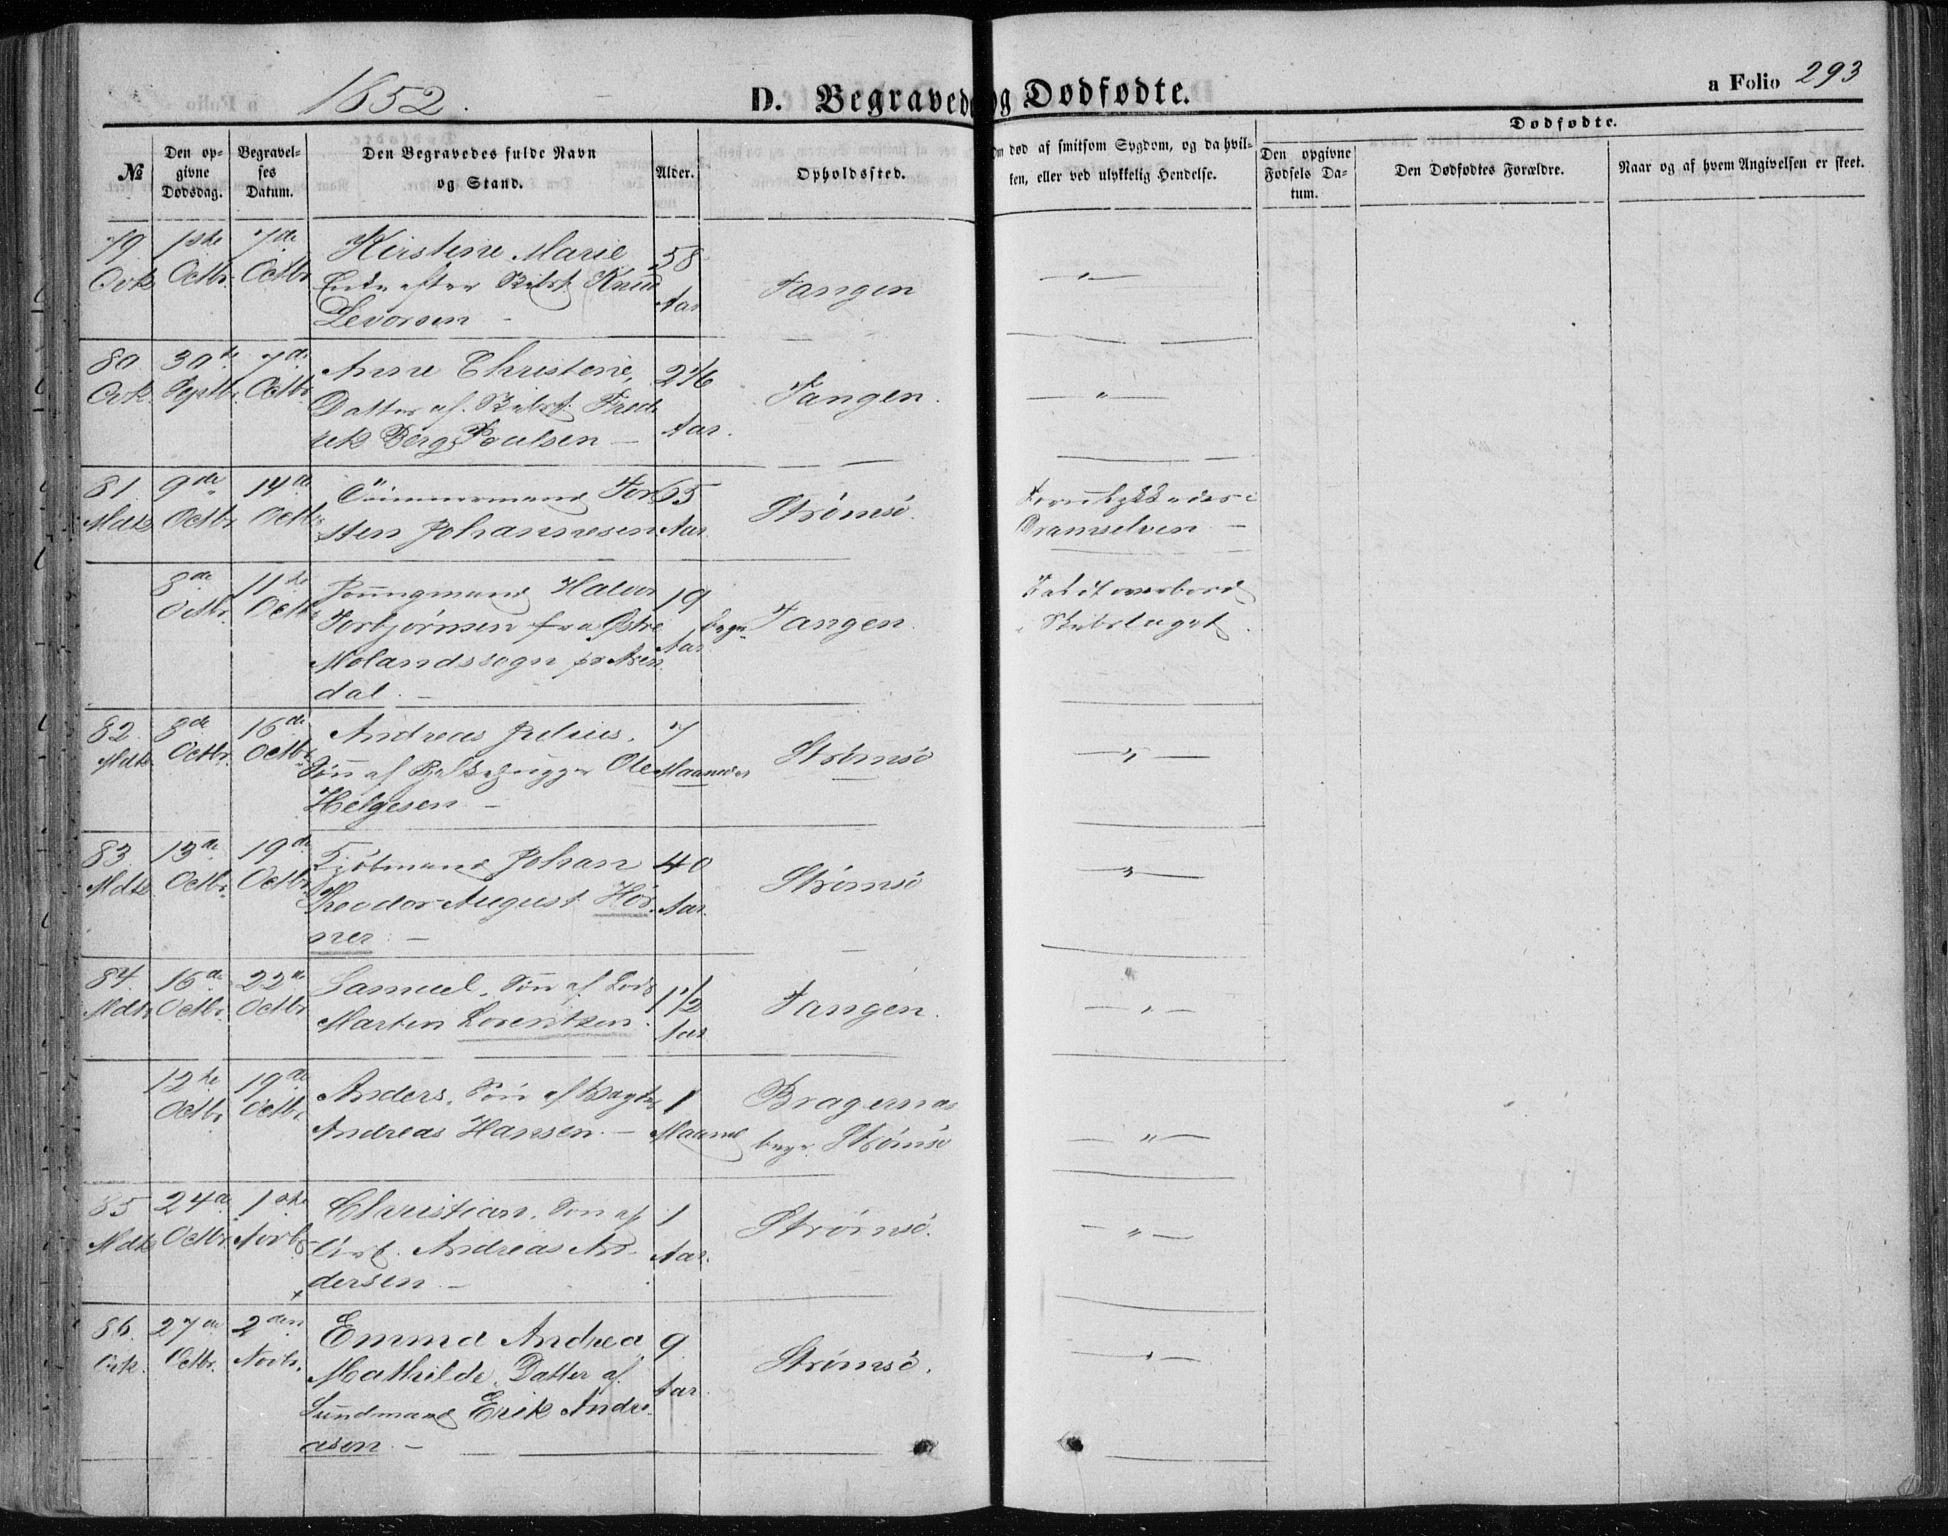 1852.
D. Begravede og Dødfødte.
a Folio 293
№
Den opgivne Dødsdag.
Begravelses Datum.
Den Begravedes fulde Navn og Stand.
Alder.
Opholdssted.
Om død af smitsom Sygdom, og da hvilken, eller ved ulykkelig Hendelse.
Dødfødte.
Den opgivne Fødsels Datum.
Den Dødfødtes Forældre.
Naar og af hvem Angivelsen er skeet.
79 1ste 7de Kirstine Marie 58
Octbr. Octbr. Enke efter Knud Aar Tangen — " —
Levorsen —
80. 30te 7de Anne Christine, 2 1/6
Septbr. Octbr. Datter af Fred- Aar. Tangen. — " —
rik Berg Poulsen —
81. 9de 14de Tømmermand Tor- 65
Mdk Octbr. Octbr. sten Johannesen Aar Strømsø.
Dramselven —
8de 11te Youngmand Halvor 19
Octbr. Octbr. Torbjørnsen fra Østre Aar begr. Tangen. Faldt overbord
Molandssogn pr Aren-
dal. —
82. 8de 16de Andreas Julius, 7
Mdk. Octbr. Octbr. Søn af Ole Maaneder Strømsø — " —
Helgesen —
83. 13de 19de Kjøbmand Johan 40
Mdk Octbr. Octbr. Theodor August Hör- Aar. Strømsø — " —
ner. —
84. 16de 22de Samuel, Søn af Lods 1 1/2
Mdk. Octbr. Octbr. Martin Lorentzen. Aar Tangen. — " —
12te 19de Anders, Søn af 1 Bragernæs
Octbr. Octbr. Andreas Hansen. — Maaned begr. Strømsø — " —
85 24de 1ste Christian, Søn af 1 Strømsø.
Mdk Octbr. Novbr. Andreas An- Aar. — " —
dersen —
86. 27de 2den Emma Andrea 9
Octbr. Novbr. Mathilde, Datter af Aar. Strømsø. — " —
Erik Andre-
asen. —